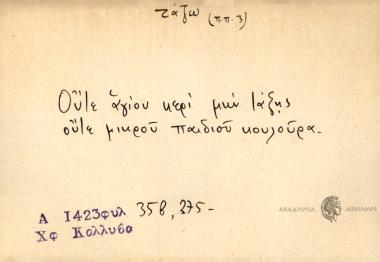 τάζω (π.π. 3)
Οὔτε ἁγίου κερί μήν τάξῃς
οὔτε μικροῦ παιδιοῦ κουλούρα.
Α 1423φυλ 358, 375-
Χφ Κολλυβα
ΑΚΑΔΗΜΙΑ ΑΘΗΝΩΝ